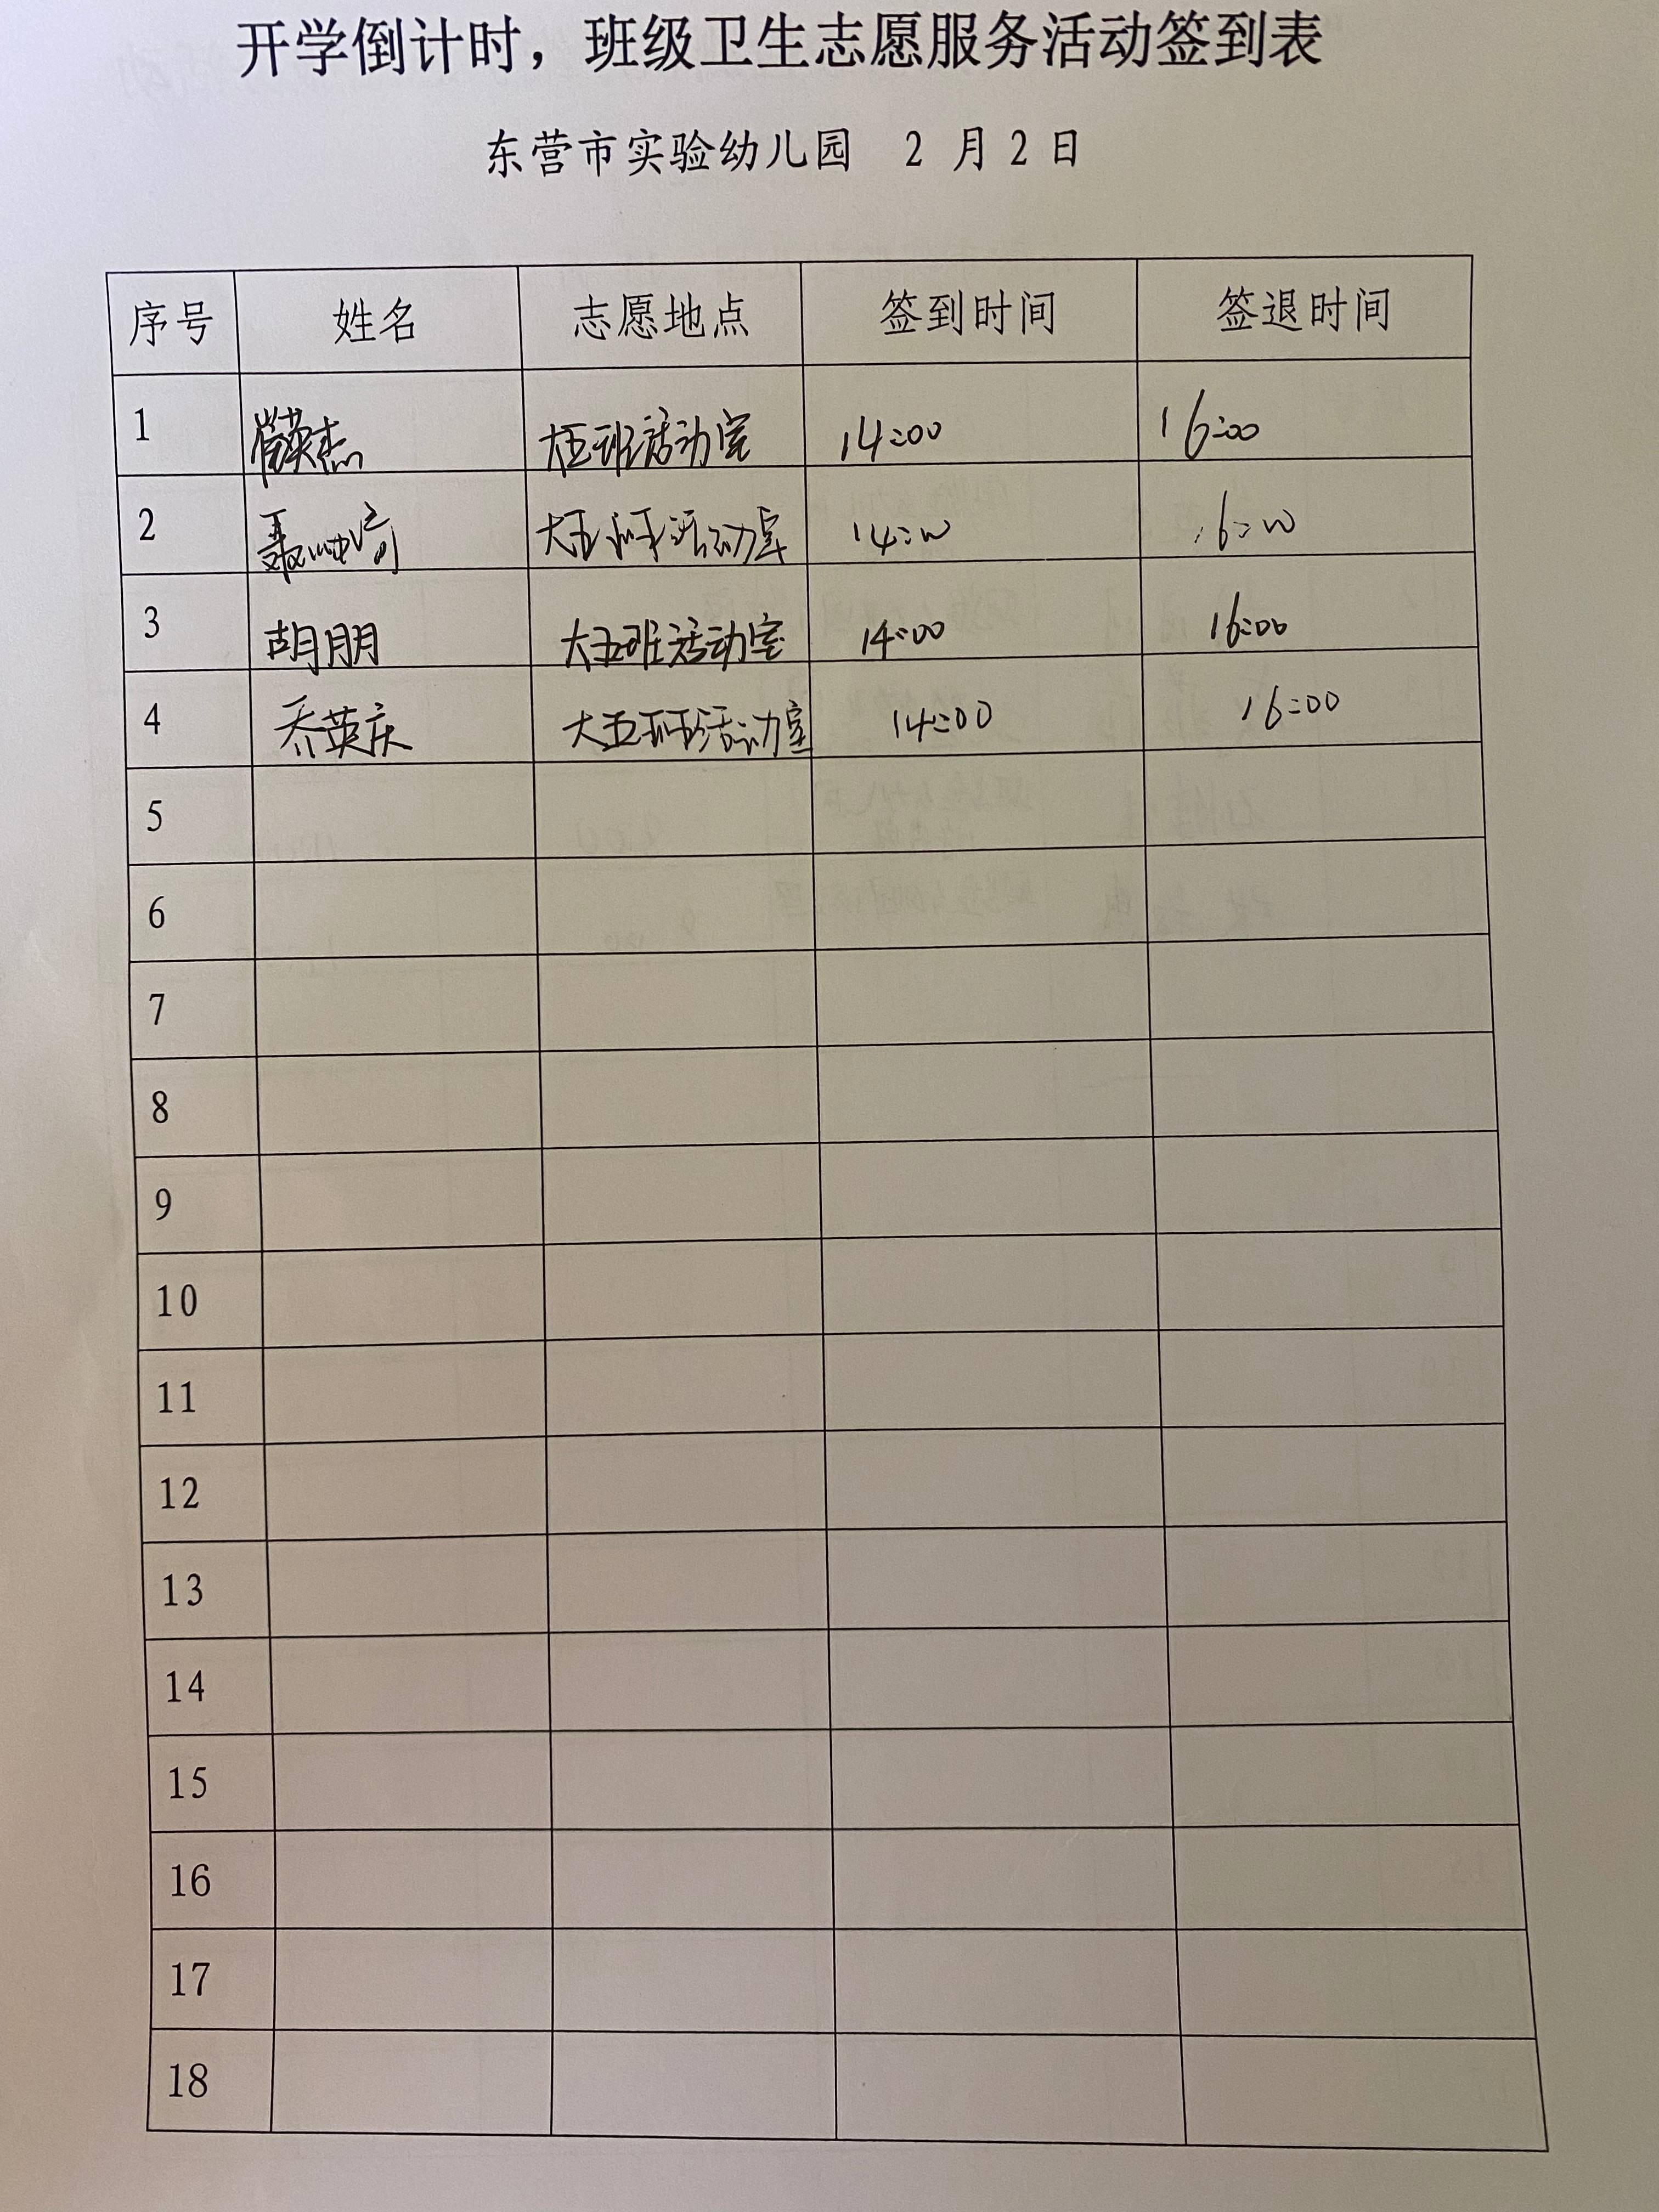 开学倒计时，班级卫生志愿服务活动签到表
东营市实验幼儿园 2 月 2 日
序号 姓名 志愿地点 签到时间 签退时间
1 英杰 大五班活动室 14:00 16:00
2 聂 大五班活动室 14:00 16:00
3 胡朋 大五班活动室 14:00 16:00
4 乔英庆 大五班活动室 14:00 16:00
5
6
7
8
9
10
11
12
13
14
15
16
17
18